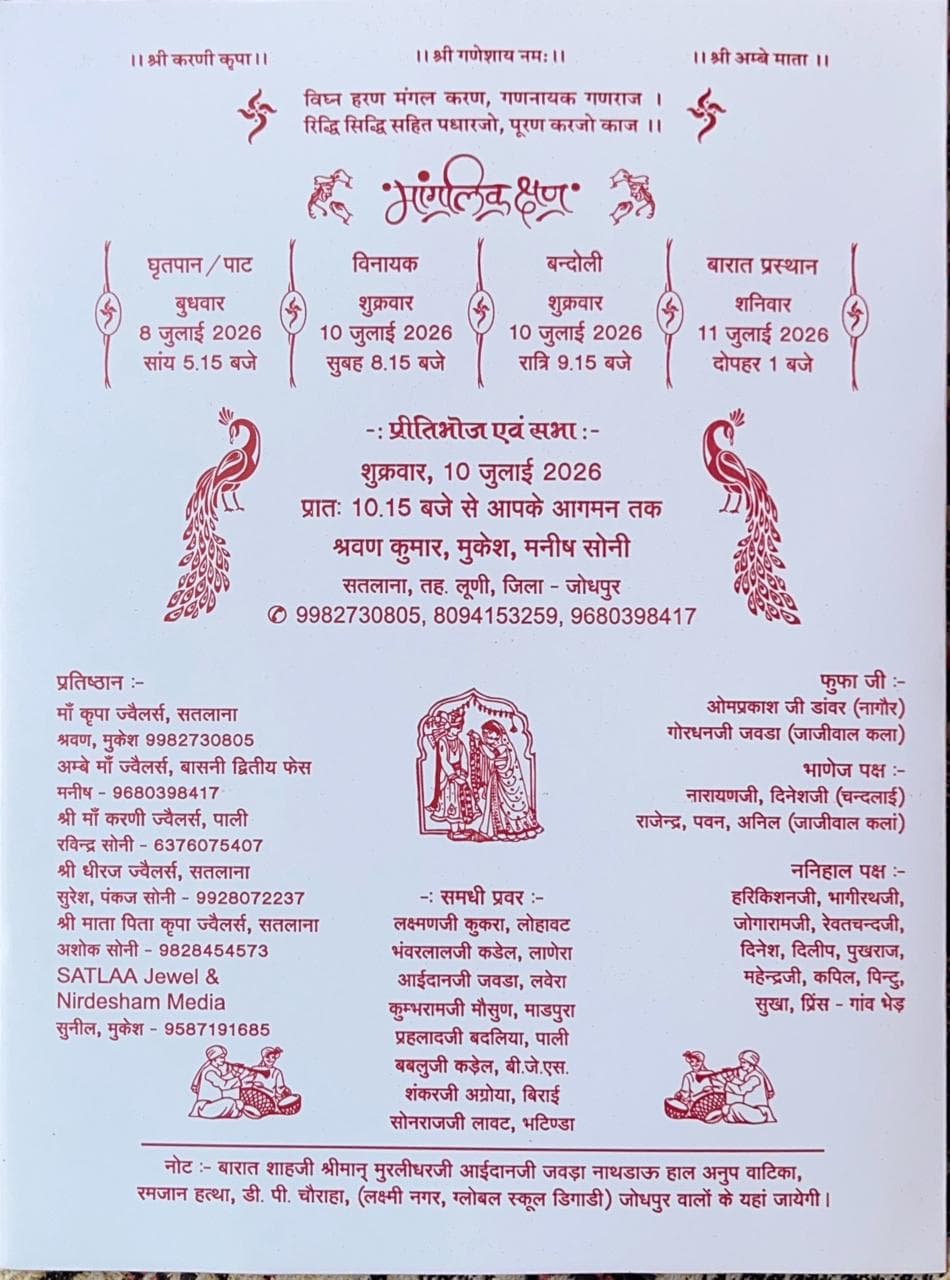 ।। श्री करणी कृपा।।
।। श्री गणेशाय नमः।।
।। श्री अम्बे माता ।।
विघ्न हरण मंगल करण, गणनायक गणराज ।
रिद्धि सिद्धि सहित पधारजो, पूरण करजो काज ।।
मांगलिक क्षण
घृतपान/पाट
बुधवार
8 जुलाई 2026
सांय 5.15 बजे
विनायक
शुक्रवार
10 जुलाई 2026
सुबह 8.15 बजे
बन्दोली
शुक्रवार
10 जुलाई 2026
रात्रि 9.15 बजे
बारात प्रस्थान
शनिवार
11 जुलाई 2026
दोपहर 1 बजे
-: प्रीतिभोज एवं सभा :-
शुक्रवार, 10 जुलाई 2026
प्रातः 10.15 बजे से आपके आगमन तक
श्रवण कुमार, मुकेश, मनीष सोनी
सतलाना, तह. लूणी, जिला - जोधपुर
✆ 9982730805, 8094153259, 9680398417
प्रतिष्ठान :-
माँ कृपा ज्वैलर्स, सतलाना
श्रवण, मुकेश 9982730805
अम्बे माँ ज्वैलर्स, बासनी द्वितीय फेस
मनीष - 9680398417
श्री माँ करणी ज्वैलर्स, पाली
रविन्द्र सोनी - 6376075407
श्री धीरज ज्वैलर्स, सतलाना
सुरेश, पंकज सोनी - 9928072237
श्री माता पिता कृपा ज्वैलर्स, सतलाना
अशोक सोनी - 9828454573
SATLAA Jewel &
Nirdesham Media
सुनील, मुकेश - 9587191685
-: समधी प्रवर :-
लक्ष्मणजी कुकरा, लोहावट
भंवरलालजी कडेल, लाणेरा
आईदानजी जवडा, लवेरा
कुम्भरामजी मौसुण, माडपुरा
प्रहलादजी बदलिया, पाली
बबलुजी कड़ेल, बी.जे.एस.
शंकरजी अग्रोया, बिराई
सोनराजजी लावट, भटिण्डा
फुफा जी :-
ओमप्रकाश जी डांवर (नागौर)
गोरधनजी जवडा (जाजीवाल कला)
भाणेज पक्ष :-
नारायणजी, दिनेशजी (चन्दलाई)
राजेन्द्र, पवन, अनिल (जाजीवाल कलां)
ननिहाल पक्ष :-
हरिकिशनजी, भागीरथजी,
जोगारामजी, रेवतचन्दजी,
दिनेश, दिलीप, पुखराज,
महेन्द्रजी, कपिल, पिन्टु,
सुखा, प्रिंस - गांव भेड़
नोट :- बारात शाहजी श्रीमान् मुरलीधरजी आईदानजी जवड़ा नाथडाऊ हाल अनुप वाटिका,
रमजान हत्था, डी. पी. चौराहा, (लक्ष्मी नगर, ग्लोबल स्कूल डिगाडी) जोधपुर वालों के यहां जायेगी।